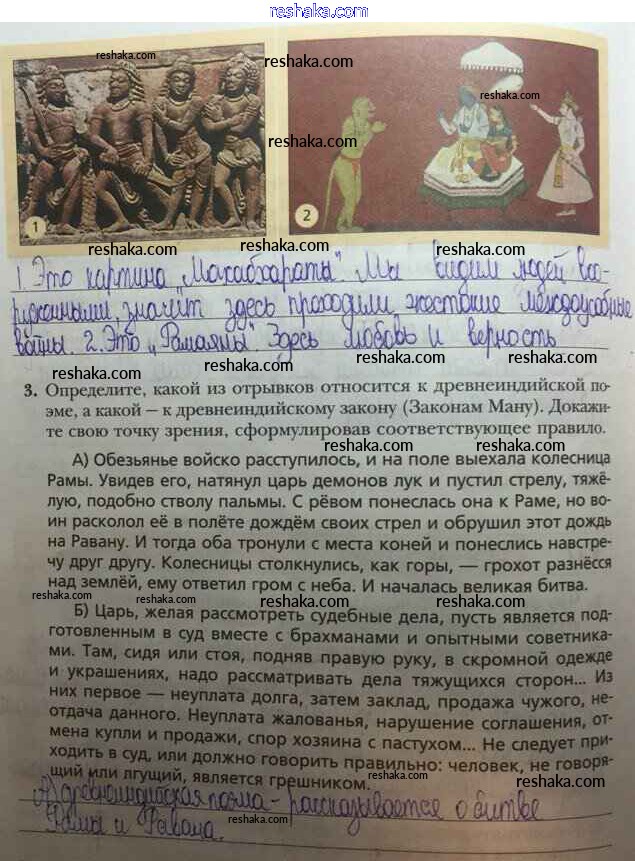 reshaka.com
reshaka.com
reshaka.com
reshaka.com
reshaka.com
reshaka.com
1
2
reshaka.com
reshaka.com
1 Это картина „Махабхараты". Мы видим людей воо-
руженными, значит здесь проходили жестокие междоусобные
reshaka.com
reshaka.com
войны. 2. Это „Рамаяны". Здесь любовь и верность
reshaka.com
reshaka.com
3. Определите, какой из отрывков относится к древнеиндийской по-
эме, а какой – к древнеиндийскому закону (Законам Ману). Докажи-
те свою точку зрения, сформулировав соответствующее правило.
reshaka.com
А) Обезьянье войско расступилось, и на поле выехала колесница
reshaka.com
Рамы. Увидев его, натянул царь демонов лук и пустил стрелу, тяжё-
лую, подобно стволу пальмы. С рёвом понеслась она к Раме, но во-
reshaka.com
ин расколол её в полёте дождём своих стрел и обрушил этот дождь
на Равану. И тогда оба тронули с места коней и понеслись навстре-
чу друг другу. Колесницы столкнулись, как горы, — грохот разнёсся
reshaka.com
над землёй, ему ответил гром с неба. И началась великая битва.
reshaka.com
reshaka.com
Б) Царь, желая рассмотреть судебные дела, пусть является под-
reshaka.com
готовленным в суд вместе с брахманами и опытными советника-
ми. Там, сидя или стоя, подняв правую руку, в скромной одежде
reshaka.com
и украшениях, надо рассматривать дела тяжущихся сторон... Из
reshaka.com
них первое — неуплата долга, затем заклад, продажа чужого, не-
отдача данного. Неуплата жалованья, нарушение соглашения, от-
reshaka.com
мена купли и продажи, спор хозяина с пастухом... Не следует при-
ходить в суд, или должно говорить правильно: человек, не говоря-
reshaka.com
щий или лгущий, является грешником.
reshaka.com
А) древнеиндийская поэма - рассказывается о битве
Рамы и Равана.
reshaka.com
reshaka.com